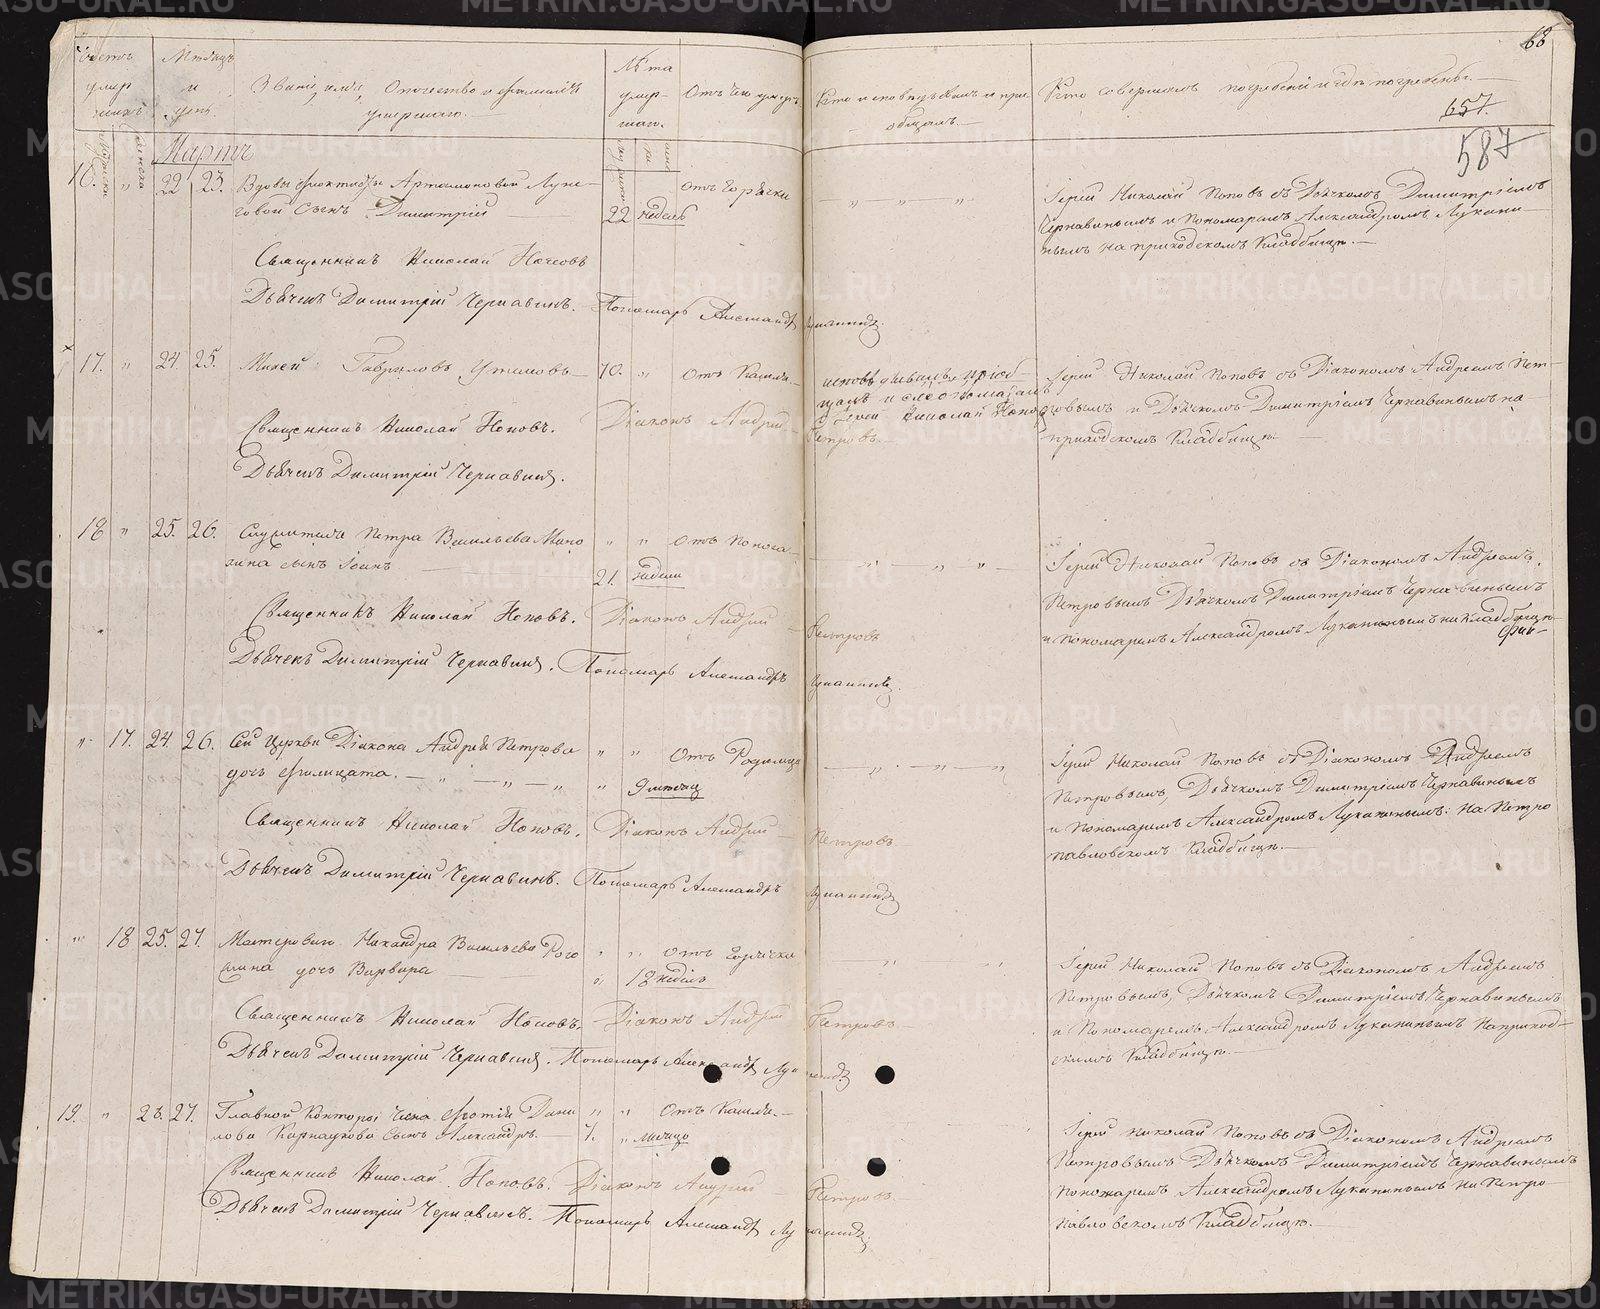 68
657.
587
Счетъ умер шихъ
Мѣсяцъ и день.
Званіе, имя, Отчество и фамилія умершаго.—
Лѣта умер- шаго.
Отъ чего умеръ
Кто исповѣдывалъ и прі- общалъ.—
Кто совершалъ погребеніе и гдѣ погребены.—
Мартъ
16. " 22 23. Вдовы Артамоновой
говой Сынъ Димитрій 22 недѣль
Отъ горячки
Іерей Николай Поповъ съ Дьячкомъ Димитріемъ
Чернавинымъ и Пономаремъ Александромъ Лукани-
нымъ на приходскомъ Кладбищѣ.—
Священникъ Николай Поповъ
Дьячекъ Димитрій Чернавинъ. Пономарь Александръ Луканинъ.
17. " 24. 25. Михей Гавриловъ 70. " Отъ Кашля.—
исповѣдывалъ и пріоб-
щалъ
Іерей Николай Поповъ
Іерей Николай Поповъ съ Діакономъ Андреемъ Пет-
ровымъ и Дьячкомъ Димитріемъ Чернавинымъ на
приходскомъ Кладбищѣ.—
Священникъ Николай Поповъ. Діаконъ Андрей Петровъ.
Дьячекъ Димитрій Чернавинъ.
18 " 25. 26. Служителя Петра Васильева
сынъ Іоанъ 21. недѣли
Отъ поноса
Іерей Николай Поповъ съ Діакономъ Андреемъ
Петровымъ Дьячкомъ Димитріемъ Чернавинымъ
и Пономаремъ Александромъ Луканинымъ на Кладбищѣ
Священникъ Николай Поповъ. Діаконъ Андрей Петровъ
Дьячекъ Димитрій Чернавинъ. Пономарь Александръ Луканинъ.
" 17. 24. 26. Сей Церкви Діакона Андрея Петрова " " Отъ Родимца
дочь Филицата.— " — " — " " 9 мѣсяц
Іерей Николай Поповъ съ Діакономъ Андреемъ
Петровымъ, Дьячкомъ Димитріемъ Чернавинымъ
и Пономаремъ Александромъ Луканинымъ: на Петро
павловскомъ Кладбищѣ.—
Священникъ Николай Поповъ. Діаконъ Андрей Петровъ.
Дьячекъ Димитрій Чернавинъ. Пономарь Александръ Луканинъ
" 18 25. 27. Мастероваго Никандра Васильева " " Отъ Горячки
дочь Варвара " 18 недѣль
Іерей Николай Поповъ съ Діакономъ Андреемъ
Петровымъ, Дьячкомъ Димитріемъ Чернавинымъ
и Пономаремъ Александромъ Луканинымъ На приход-
скомъ Кладбищѣ.—
Священникъ Николай Поповъ. Діаконъ Андрей Петровъ.
Дьячекъ Димитрій Чернавинъ. Пономарь Александръ Луканинъ
19. " 27. Главной Конторы Члена Фотія Дани " " Отъ Кашля.—
лова Карнаухова Сынъ Александръ.— 7. " мѣсяцъ
Іерей Николай Поповъ съ Діакономъ Андреемъ
Петровымъ Дьячкомъ Димитріемъ Чернавинымъ
Пономаремъ Александромъ Луканинымъ на Петро-
павловскомъ Кладбищѣ.—
Священникъ Николай Поповъ. Діаконъ Андрей Петровъ.
Дьячекъ Димитрій Чернавинъ. Пономарь Александръ Луканинъ.
METRIKI.GASO-URAL.RU